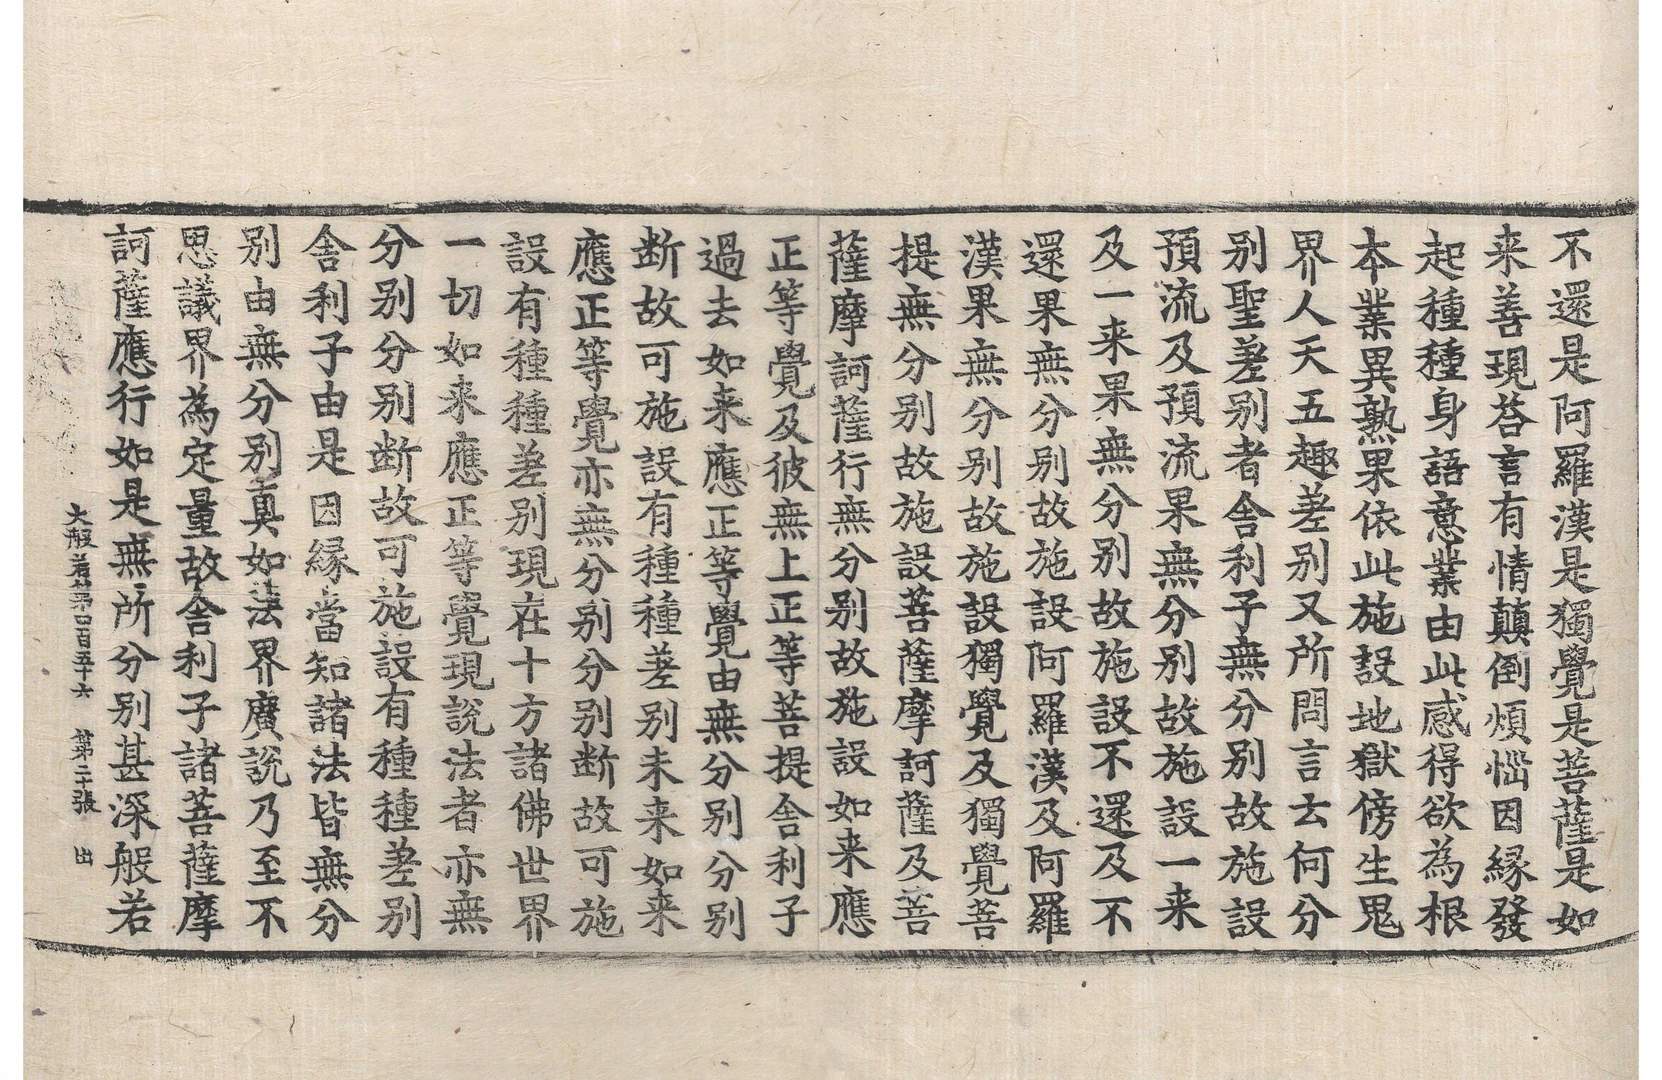 不還是阿羅漢是獨覺是菩薩是如
来善現荅言有情顛倒煩惱因緣發
起種種身語意業由此感得欲為根
本業異熟果依此施設地獄傍生鬼
界人天五趣差別又所問言云何分
別聖差別者舍利子無分別故施設
預流及預流果無分別故施設一来
及一来果無分別故施設不還及不
還果無分別故施設阿羅漢及阿羅
漢果無分別故施設獨覺及獨覺菩
提無分別故施設菩薩摩訶薩及菩
薩摩訶薩行無分別故施設如来應
正等覺及彼無上正等菩提舍利子
過去如来應正等覺由無分別分別
断故可施設有種種差別未来如来
應正等覺亦無分別分別断故可施
設有種種差別現在十方諸佛世界
一切如来應正等覺現說法者亦無
分別分別断故可施設有種種差別
舍利子由是因緣當知諸法皆無分
別由無分別真如法界廣說乃至不
思議界為定量故舍利子諸菩薩摩
訶薩應行如是無所分別甚深般若
大般若苐四百五十六 第二十張 出